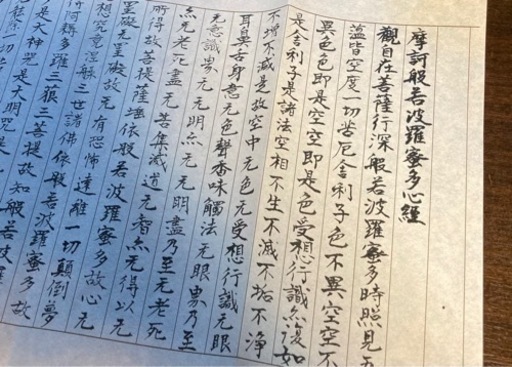 摩訶般若波羅蜜多心經
觀自在菩薩行深般若波羅蜜多時照見五
蘊皆空度一切苦厄舍利子色不異空空不
異色色即是空空即是色受想行識亦復如
是舍利子是諸法空相不生不滅不垢不淨
不增不減是故空中无色无受想行識无眼
耳鼻舌身意无色聲香味觸法无眼界乃至
无意識界无无明亦无无明盡乃至无老死
亦无老死盡无苦集滅道无智亦无得以无
所得故菩提薩埵依般若波羅蜜多故心无
罣礙无罣礙故无有恐怖遠離一切顛倒夢
想究竟涅槃三世諸佛依般若波羅蜜多故
得阿耨多羅三藐三菩提故知般若波羅
是大神咒是大明咒是
除一切